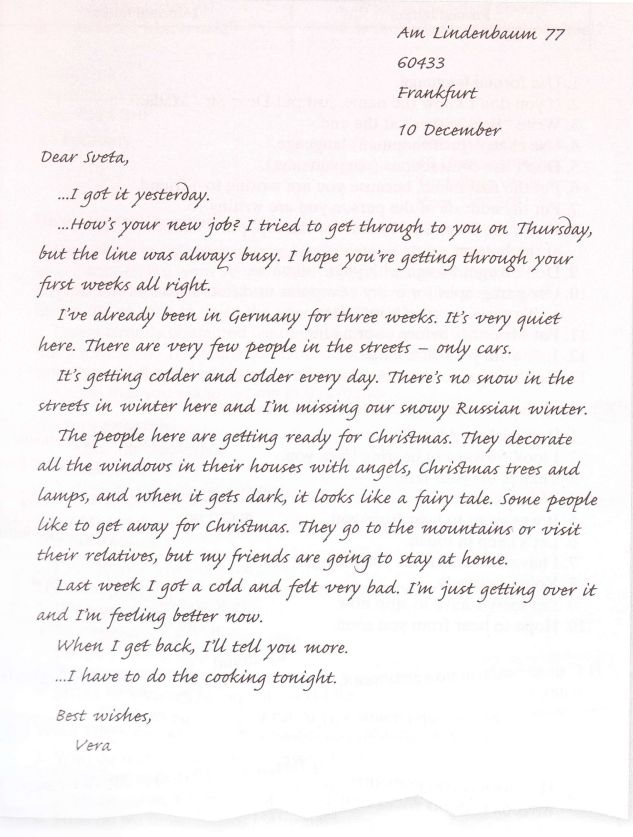 Am Lindenbaum 77
60433
Frankfurt
10 December
Dear Sveta,
...I got it yesterday.
...How's your new job? I tried to get through to you on Thursday,
but the line was always busy. I hope you're getting through your
first weeks all right.
I've already been in Germany for three weeks. It's very quiet
here. There are very few people in the streets – only cars.
It's getting colder and colder every day. There's no snow in the
streets in winter here and I'm missing our snowy Russian winter.
The people here are getting ready for Christmas. They decorate
all the windows in their houses with angels, Christmas trees and
lamps, and when it gets dark, it looks like a fairy tale. Some people
like to get away for Christmas. They go to the mountains or visit
their relatives, but my friends are going to stay at home.
Last week I got a cold and felt very bad. I'm just getting over it
and I'm feeling better now.
When I get back, I'll tell you more.
...I have to do the cooking tonight.
Best wishes,
Vera